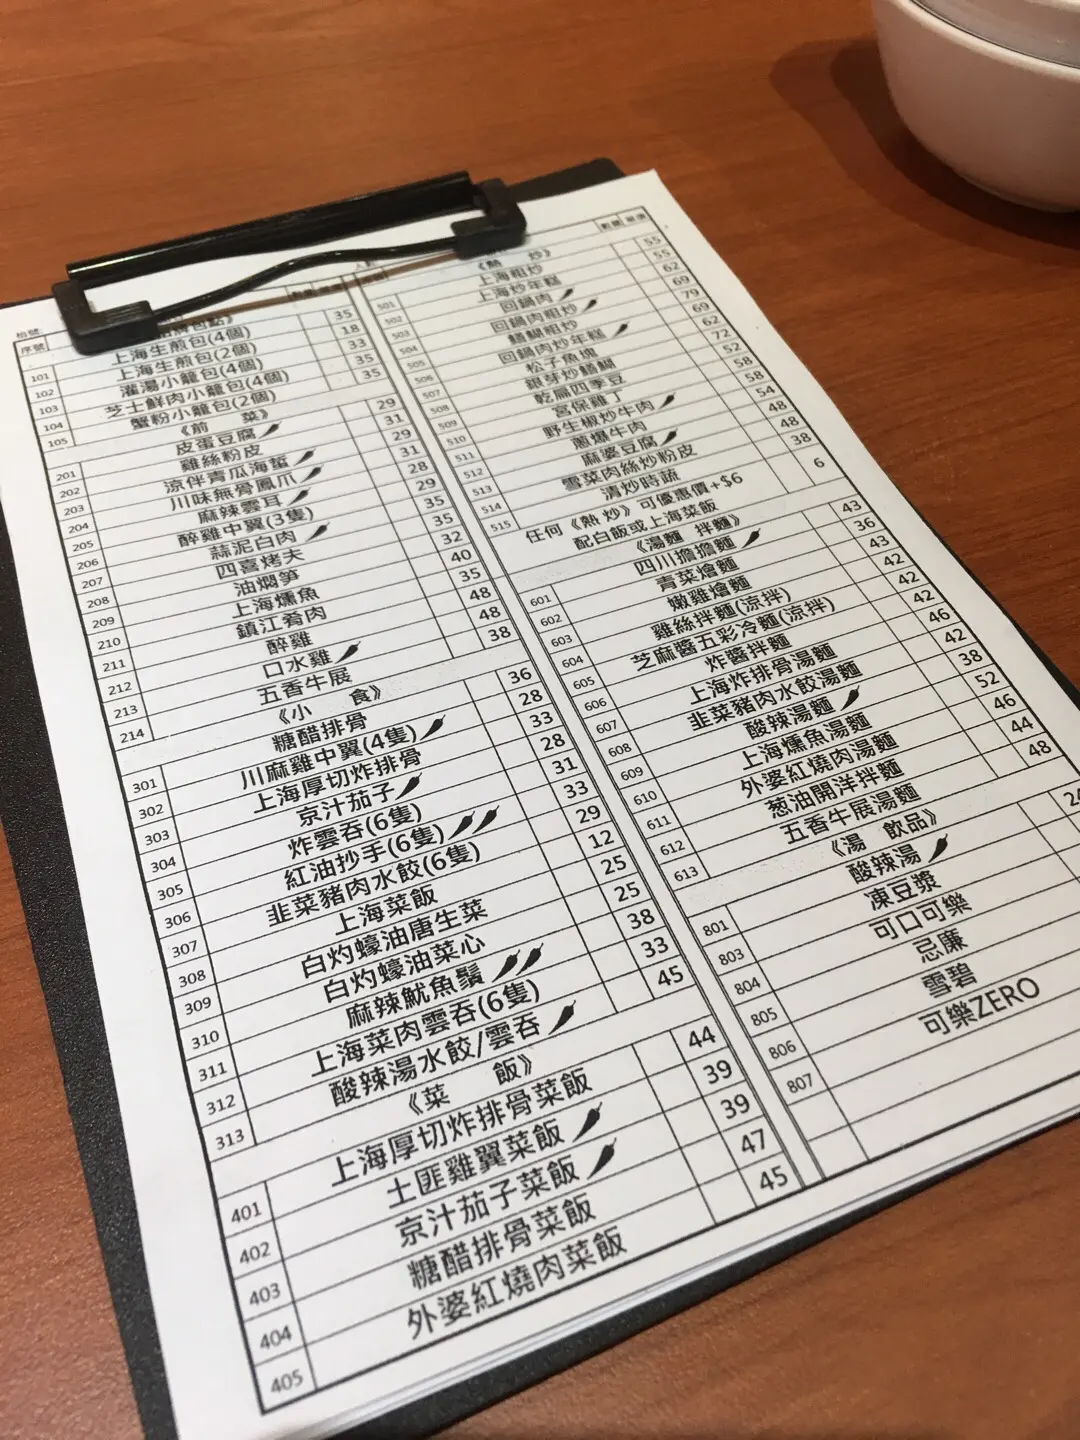 枱號
序號
101 上海生煎包(4個) 35
102 上海生煎包(2個) 18
103 灌湯小籠包(4個) 33
104 芝士鮮肉小籠包(4個) 35
105 蟹粉小籠包(2個) 35
《前 菜》
201 皮蛋豆腐 29
202 雞絲粉皮 31
203 涼伴青瓜海蜇 29
204 川味無骨鳳爪 31
205 麻辣雲耳 28
206 醉雞中翼(3隻) 29
207 蒜泥白肉 35
208 四喜烤夫 35
209 油燜筍 32
210 上海燻魚 40
211 鎮江肴肉 35
212 醉雞 48
213 口水雞 48
214 五香牛展 38
《小 食》
301 糖醋排骨 36
302 川麻雞中翼(4隻) 28
303 上海厚切炸排骨 33
304 京汁茄子 28
305 炸雲吞(6隻) 31
306 紅油抄手(6隻) 33
307 韭菜豬肉水餃(6隻) 29
308 上海菜飯 12
309 白灼蠔油唐生菜 25
310 白灼蠔油菜心 25
311 麻辣魷魚鬚 38
312 上海菜肉雲吞(6隻) 33
313 酸辣湯水餃/雲吞 45
《菜 飯》
401 上海厚切炸排骨菜飯 44
402 土匪雞翼菜飯 39
403 京汁茄子菜飯 39
404 糖醋排骨菜飯 47
405 外婆紅燒肉菜飯 45
《熱 炒》
501 上海粗炒 55
502 上海炒年糕 55
503 回鍋肉 62
504 回鍋肉粗炒 69
505 鱔糊粗炒 79
506 回鍋肉炒年糕 69
507 松子魚塊 62
508 銀芽炒鱔糊 72
509 乾扁四季豆 52
510 宮保雞丁 58
511 野生椒炒牛肉 58
512 蔥爆牛肉 54
513 麻婆豆腐 48
514 雪菜肉絲炒粉皮 48
515 清炒時蔬 38
任何《熱炒》可優惠價+$6 6
配白飯或上海菜飯
《湯麵 拌麵》
601 四川擔擔麵 43
602 青菜燴麵 36
603 嫩雞燴麵 43
604 雞絲拌麵(涼拌) 42
605 芝麻醬五彩冷麵(涼拌) 42
606 炸醬拌麵 42
607 上海炸排骨湯麵 46
608 韭菜豬肉水餃湯麵 42
609 酸辣湯麵 38
610 上海燻魚湯麵 52
611 外婆紅燒肉湯麵 46
612 葱油開洋拌麵 44
613 五香牛展湯麵 48
《湯 飲品》
801 酸辣湯
803 凍豆漿
804 可口可樂
805 忌廉
806 雪碧
807 可樂ZERO